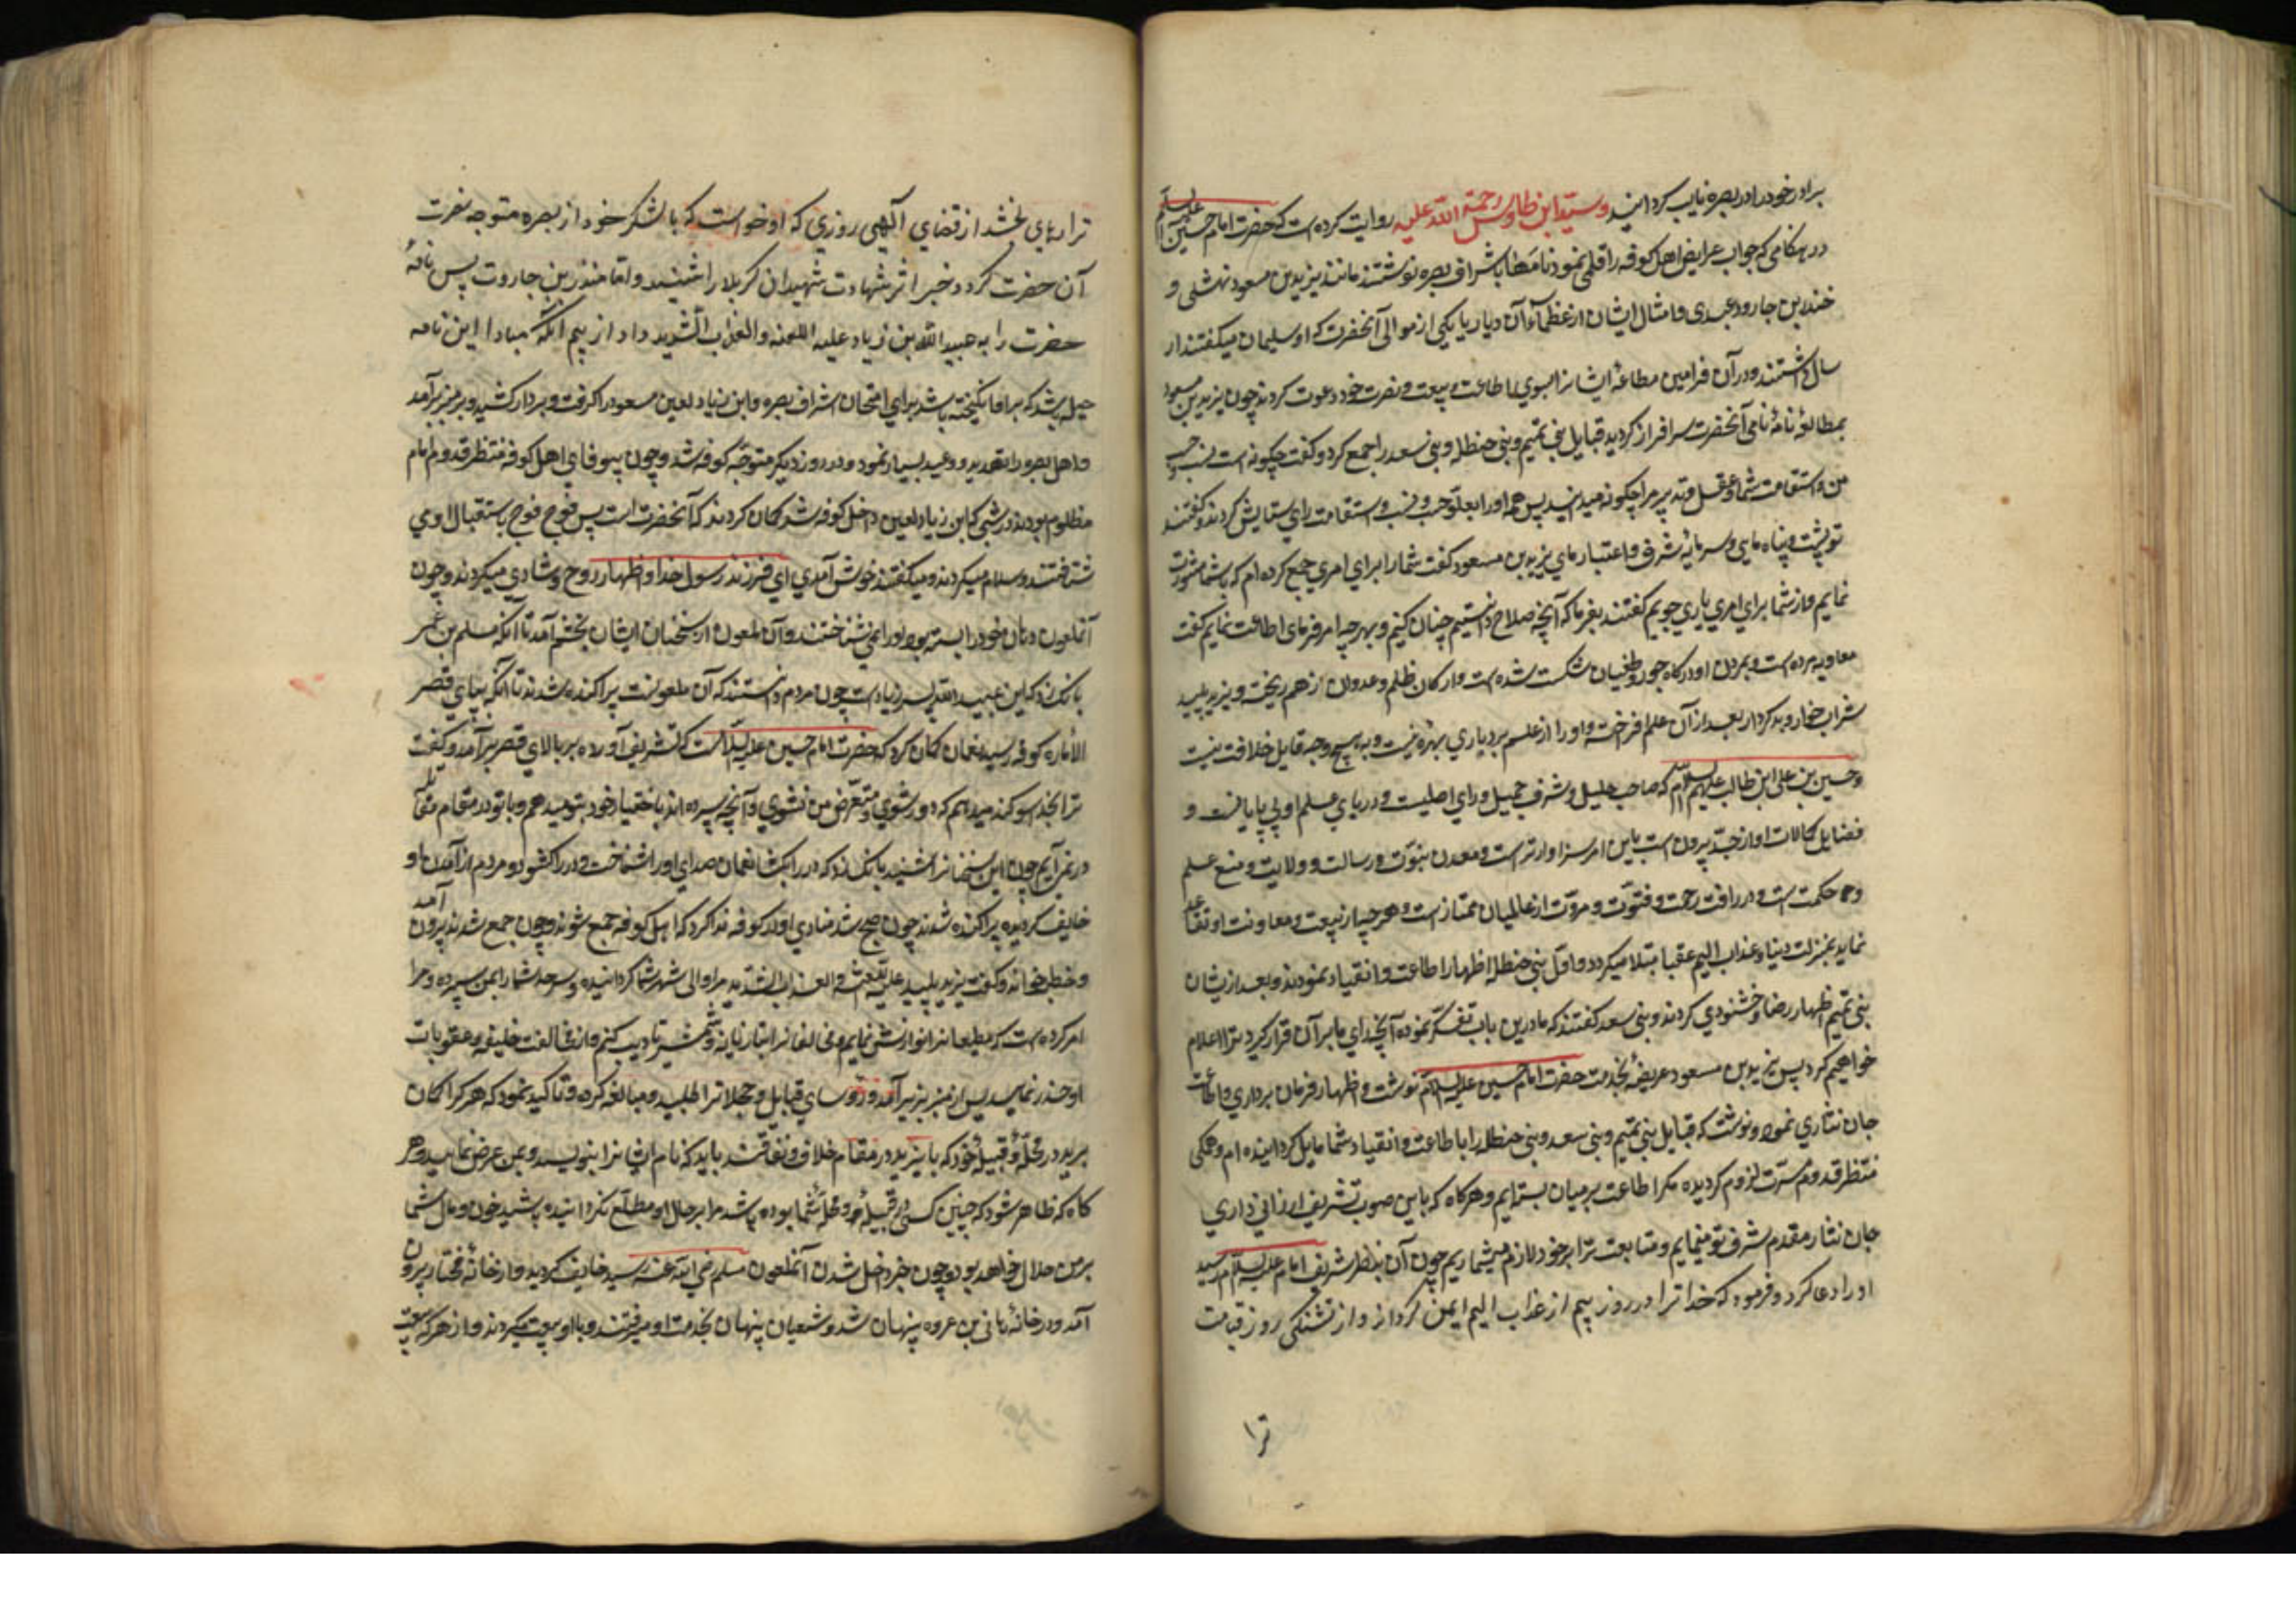 برادر خود را در بصره نایب گردانید و سید ابن طاوس رحمة الله علیه روایت کرده است که حضرت امام حسین علیه السلام
در هنگامی که جواب عرایض اهل کوفه را قلمی نمود نامها باشراف بصره نوشتند مانند یزید بن مسعود نهشلی و
منذر بن جارود عبدی و امثال ایشان از عظمآء آن دیار با یکی از موالی آنحضرت که او سلیمان میگفتند ار
سال داشتند و در آن فرامین مطاعه ایشانرا بسوی اطاعت و بیعت و نصرت خود دعوت کردند چون یزید بن مسعود
بمطالعهٔ نامهٔ نامی آنحضرت سرافراز گردید قبایل بنی تمیم و بنی حنظله و بنی سعد را جمع کرد و گفت چگونه است نسب و حسب
من و استقامت شما و عقل و تدبیر مرا چگونه میدانید پس همه او را بعلو حسب و نسب و استقامت رای ستایش کردند و گفتند
تو پشت و پناه مایی و سرمایهٔ شرف و اعتبار مای یزید بن مسعود گفت شما را برای امری جمع کرده ام که با شما مشورت
نمایم و از شما برای امری یاری جویم گفتند بفرما که آنچه صلاح دانستیم چنان کنیم و بهر چه امر فرمای اطاعت نمایم گفت
معاویه مرده است و بمردن او درگاه جور و طغیان شکست شده است و ارکان ظلم و عدوان از هم ریخت و یزید پلید
شراب خوار و بد کردار بعد از آن علم افراخته و او را از علم بردباری بهره نیست و به هیچ وجه قابل خلافت نیست
و حسین بن علی ابن طالب علیهم السلام که صاحب جلیل و شرف جمیل و رای اصلیت و دریای علم او بی پایانست و
فضایل کمالات او از حد بیرون است باین امر سزاوارتر است و معدن نبوت و رسالت و ولایت و منبع علم
و حکمت است و در رافت رحمت و فتوت و مروت از عالمیان ممتاز است و هر چه از بیعت و معاونت او تقاعد
نماید بمذلت دنیا و عذاب الیم عقبا مبتلا میگردد و اول بنی حنظله اظهار اطاعت و انقیاد نمودند و بعد از ایشان
بنی تمیم اظهار رضا و خشنودی کردند و بنی سعد گفتند که ما در این باب تفکر نموده آنچه رای ما بر آن قرار گیرد ترا اعلام
خواهیم کرد پس یزید بن مسعود عریضهٔ بخدمت حضرت امام حسین علیه السلام نوشت و اظهار فرمان برداری و اطاعت
جان نثاری نمود و نوشت که قبایل بنی تمیم و بنی سعد و بنی حنظله را با طاعت و انقیاد شما مایل گردانیده ام و همگی
منتظر قدوم مسرت لزوم گردیده کمر اطاعت بر میان بسته ایم و هر گاه که باین صوب تشریف ارزانی داری
جان نثار مقدم شرف تو مینمایم و متابعت ترا بر خود لازم میشماریم چون آن بنظر شریف امام علیه السلام رسید
او را دعا کرد و فرمود که خدا ترا در روز بیم از عذاب الیم ایمن گرداند و از تشنگی روز قیامت
ترا
ترا رهای بخشد از قضای آلهی روزی که او خواست که با لشکر خود از بصره متوجه نصرت
آن حضرت کردد خبر اثر شهادت شهیدان کربلا را شنید و اما منذر بن جاروت پس نامهٔ
حضرت را به عبید الله بن زیاد علیه اللعنه والعذاب الشدید داد از بیم آنکه مبادا این نامه
حیله باشد که برانگیخته باشد برای امتحان اشراف بصره و ابن زیاد لعین مسعود را گرفت و بر دار کشید و بر منبر برآمد
و اهل بصره را تهدید و وعید بسیار نمود و در روز دیگر متوجه کوفه شد و چون بیوفای اهل کوفه منتظر قدوم امام
مظلوم بودند در شبی که ابن زیاد لعین داخل کوفه شد گمان کردند که آنحضرت است پس فوج فوج باستقبال او می
شتافتند و سلام میکردند و میگفتند خوش آمدی ای فرزند رسول خدا و اظهار روح و شادی میکردند و چون
آنملعون دهان خود را بسته بود او را نمی شناختند و آن ملعون از سخنان ایشان بخشم آمد تا آنکه مسلم بن عمر
بانک زد که این عبید الله پسر زیاد است چون مردم دانستند که آن ملعونست پراکنده شدند تا آنکه بپای قصر
الأماره کوفه رسید نعمان گمان کرد که حضرت امام حسین علیه السلام است که تشریف آورده بر بالای قصر برآمد و گفت
ترا بخدا سوگند میدهم که دور شوی و متعرض من نشوی و آنچه سپرده اند باختیار خود بتو نمیدهم و با تو در مقام مقاتله
در نمی آیم چون این سخنانرا شنید بانک زد که در را بکشا نعمان صدای او را شناخت و در را کشود و مردم از آمدن او
خایف گردیده پراکنده شدند چون صبح شد منادی او در کوفه ندا کرد که اهل کوفه جمع شوند و چون جمع شدند بیرون آمد
و خطبه خواند و گفت یزید پلید علیه اللعنة والعذاب الشدید مرا والی شهر شما گردانیده و سرحد شما را بمن سپرده و مرا
امر کرده است که مطیعانرا نوازش نمایم و مخالفانرا بتازیانه و شمشیر تادیب کنم و از مخالفت خلیفه و عقوبات
او حذر نمایید پس از منبر بزیر آمد و رؤسای قبایل و محلاترا طلبید و مبالغه کرده و تاکید نمود که هر کرا گمان
برید در محله و قبیله خود که با یزید در مقام خلاف و نفاقند باید که نام ایشانرا بنویسد و بمن عرض نمایید و هر
گاه که ظاهر شود که چنین کسی در قبیله و محله شما بوده باشد مرا بر حال او مطلع نگردانیده باشید خون و مال شما
بر من حلال خواهد بود و چون خبر داخل شدن آنملعون مسلم رضی الله عنه رسید خایف گردید و از خانهٔ مختار بیرون
آمد و در خانهٔ هانی بن عروه پنهان شد و شعیان پنهان بخدمت او میرفتند و با او بیعت میکردند و از هر که بیعت